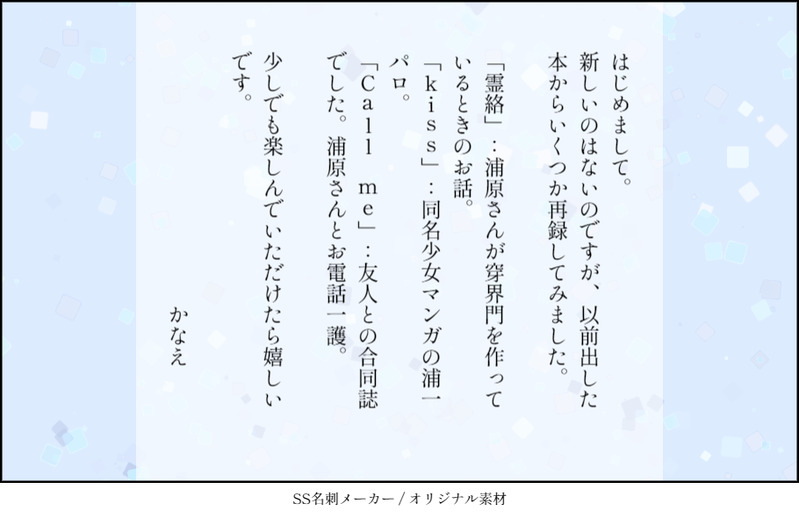 はじめまして。
新しいのはないのですが、以前出した
本からいくつか再録してみました。
「霊絡」：浦原さんが穿界門を作って
いるときのお話。
「ｋｉｓｓ」：同名少女マンガの浦一
パロ。
「Ｃａｌｌ　ｍｅ」：友人との合同誌
でした。浦原さんとお電話一護。
少しでも楽しんでいただけたら嬉しい
です。
かなえ
SS名刺メーカー / オリジナル素材